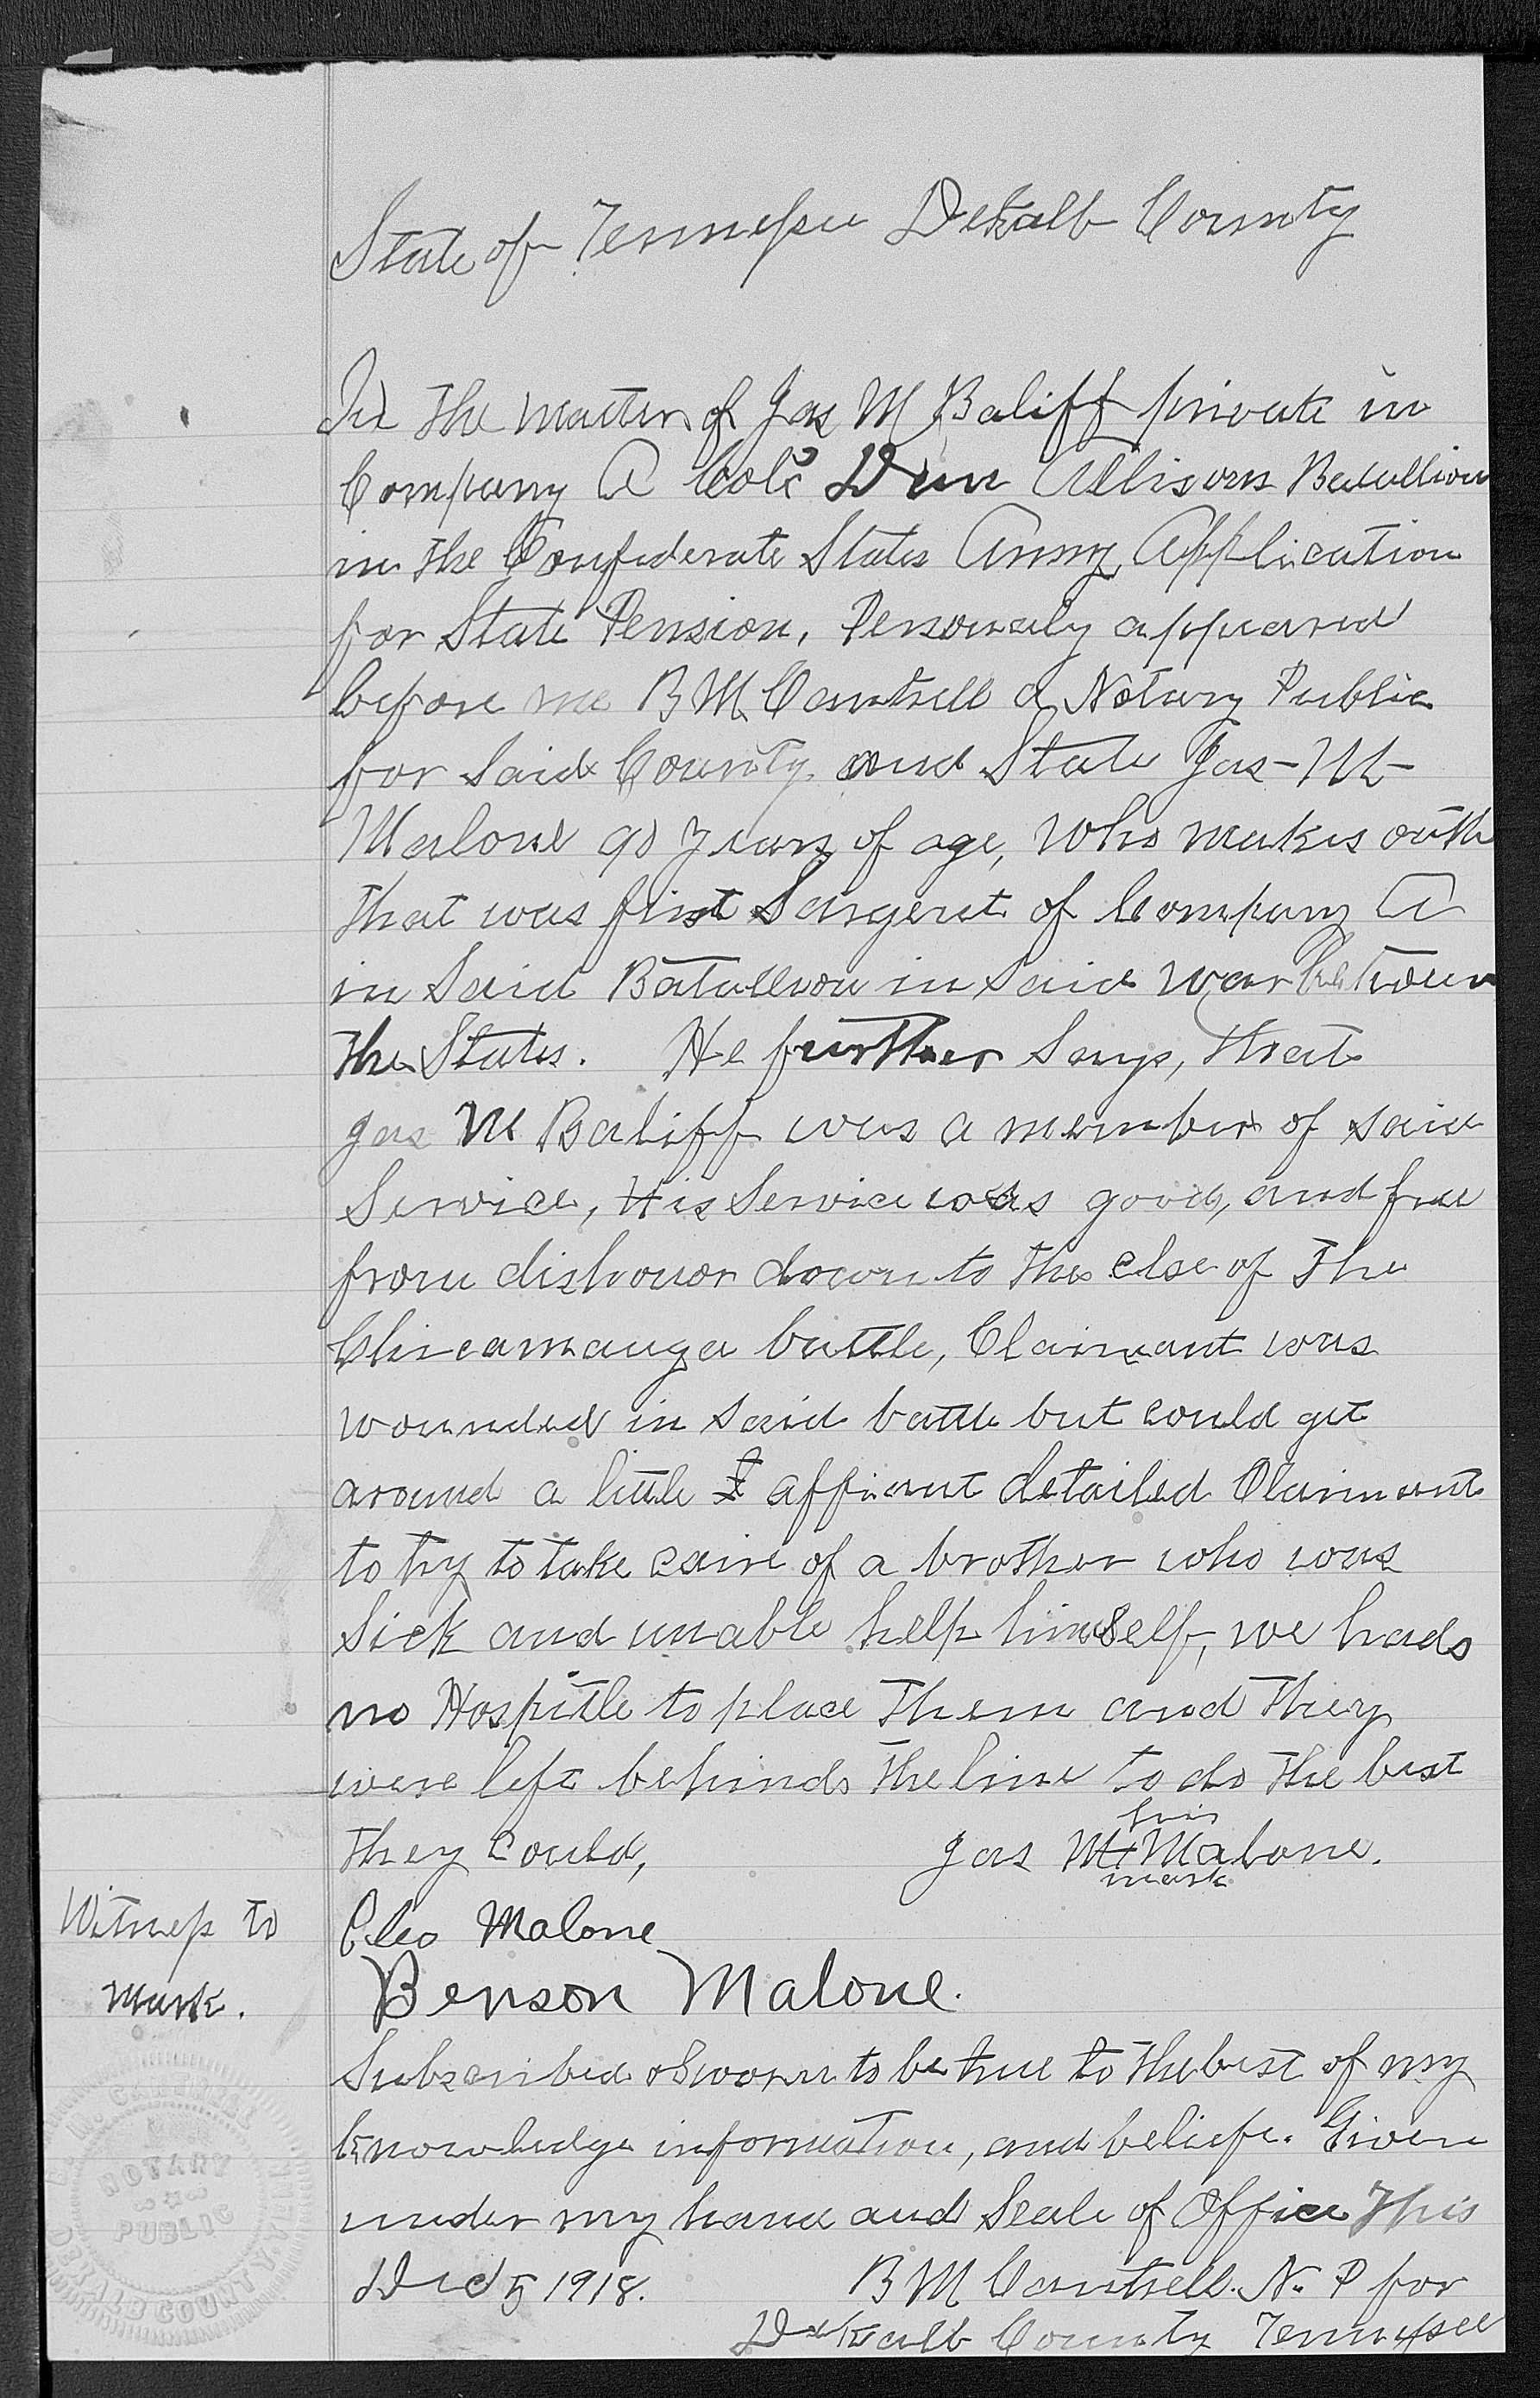 State of Tennessee Dekalb County
In the matter of Jas M Baliff private in
Company A Col's Dun Allisons Batallion
in the Confederate States Army, Application
for State Pension, Personaly appeared
before me B M Cantrell a Notary Public
for Said County and State Jas - M -
Malone 90 years of age, Who makes outh
that was first Sargent of Company A
in Said Batallion in said war between
the States. He further Says, that
Jas M Baliff was a member of said
Service, His Service was good, and free
from dishonor down to the clse of the
Chicamauga battle, Claimant was
wounded in said battle but could get
around a little I affiant detailed Claimant
to try to take caire of a brother who was
Sick and unable help himself, we had
no Hospitle to place them and they
were left behind the line to do the best
they could,
his
Jas M x Malone.
mark
Witness to
mark.
Cleo Malone
Benson Malone.
Subscribed & Sworn to be true to the best of my
knowledge information, and beliefe. Given
under my hand and Seale of Office This
Dec 5 1918. B M Cantrell. N. P for
DeKalb County Tennessee
B. M. CANTRELL
NOTARY
PUBLIC
DEKALB COUNTY, TENN.